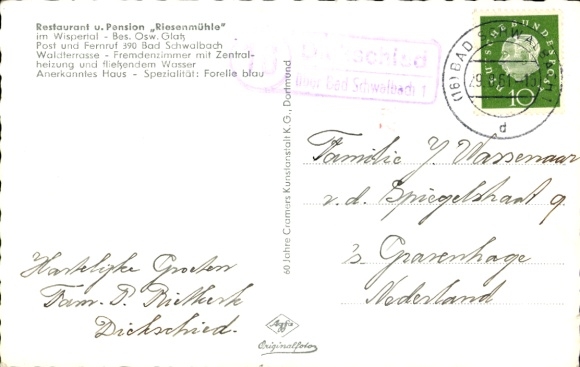 Restaurant u. Pension „Riesenmühle"
im Wispertal - Bes. Osw. Glatz
Post und Fernruf 390 Bad Schwalbach
Waldterrasse - Fremdenzimmer mit Zentral-
heizung und fließendem Wasser
Anerkanntes Haus - Spezialität: Forelle blau
Dickschied
über Bad Schwalbach 1
(16) BAD SCHWALBACH
d
DEUTSCHE BUNDESPOST
10
60 Jahre Cramers Kunstanstalt K.G., Dortmund
Familie J. Wassenaar
v.d. Spiegelstraat 9.
's Gravenhage
Nederland
Hartelijke Groeten
Fam. P. Rietkerk
Dickschied.
Agfa
Originalfoto